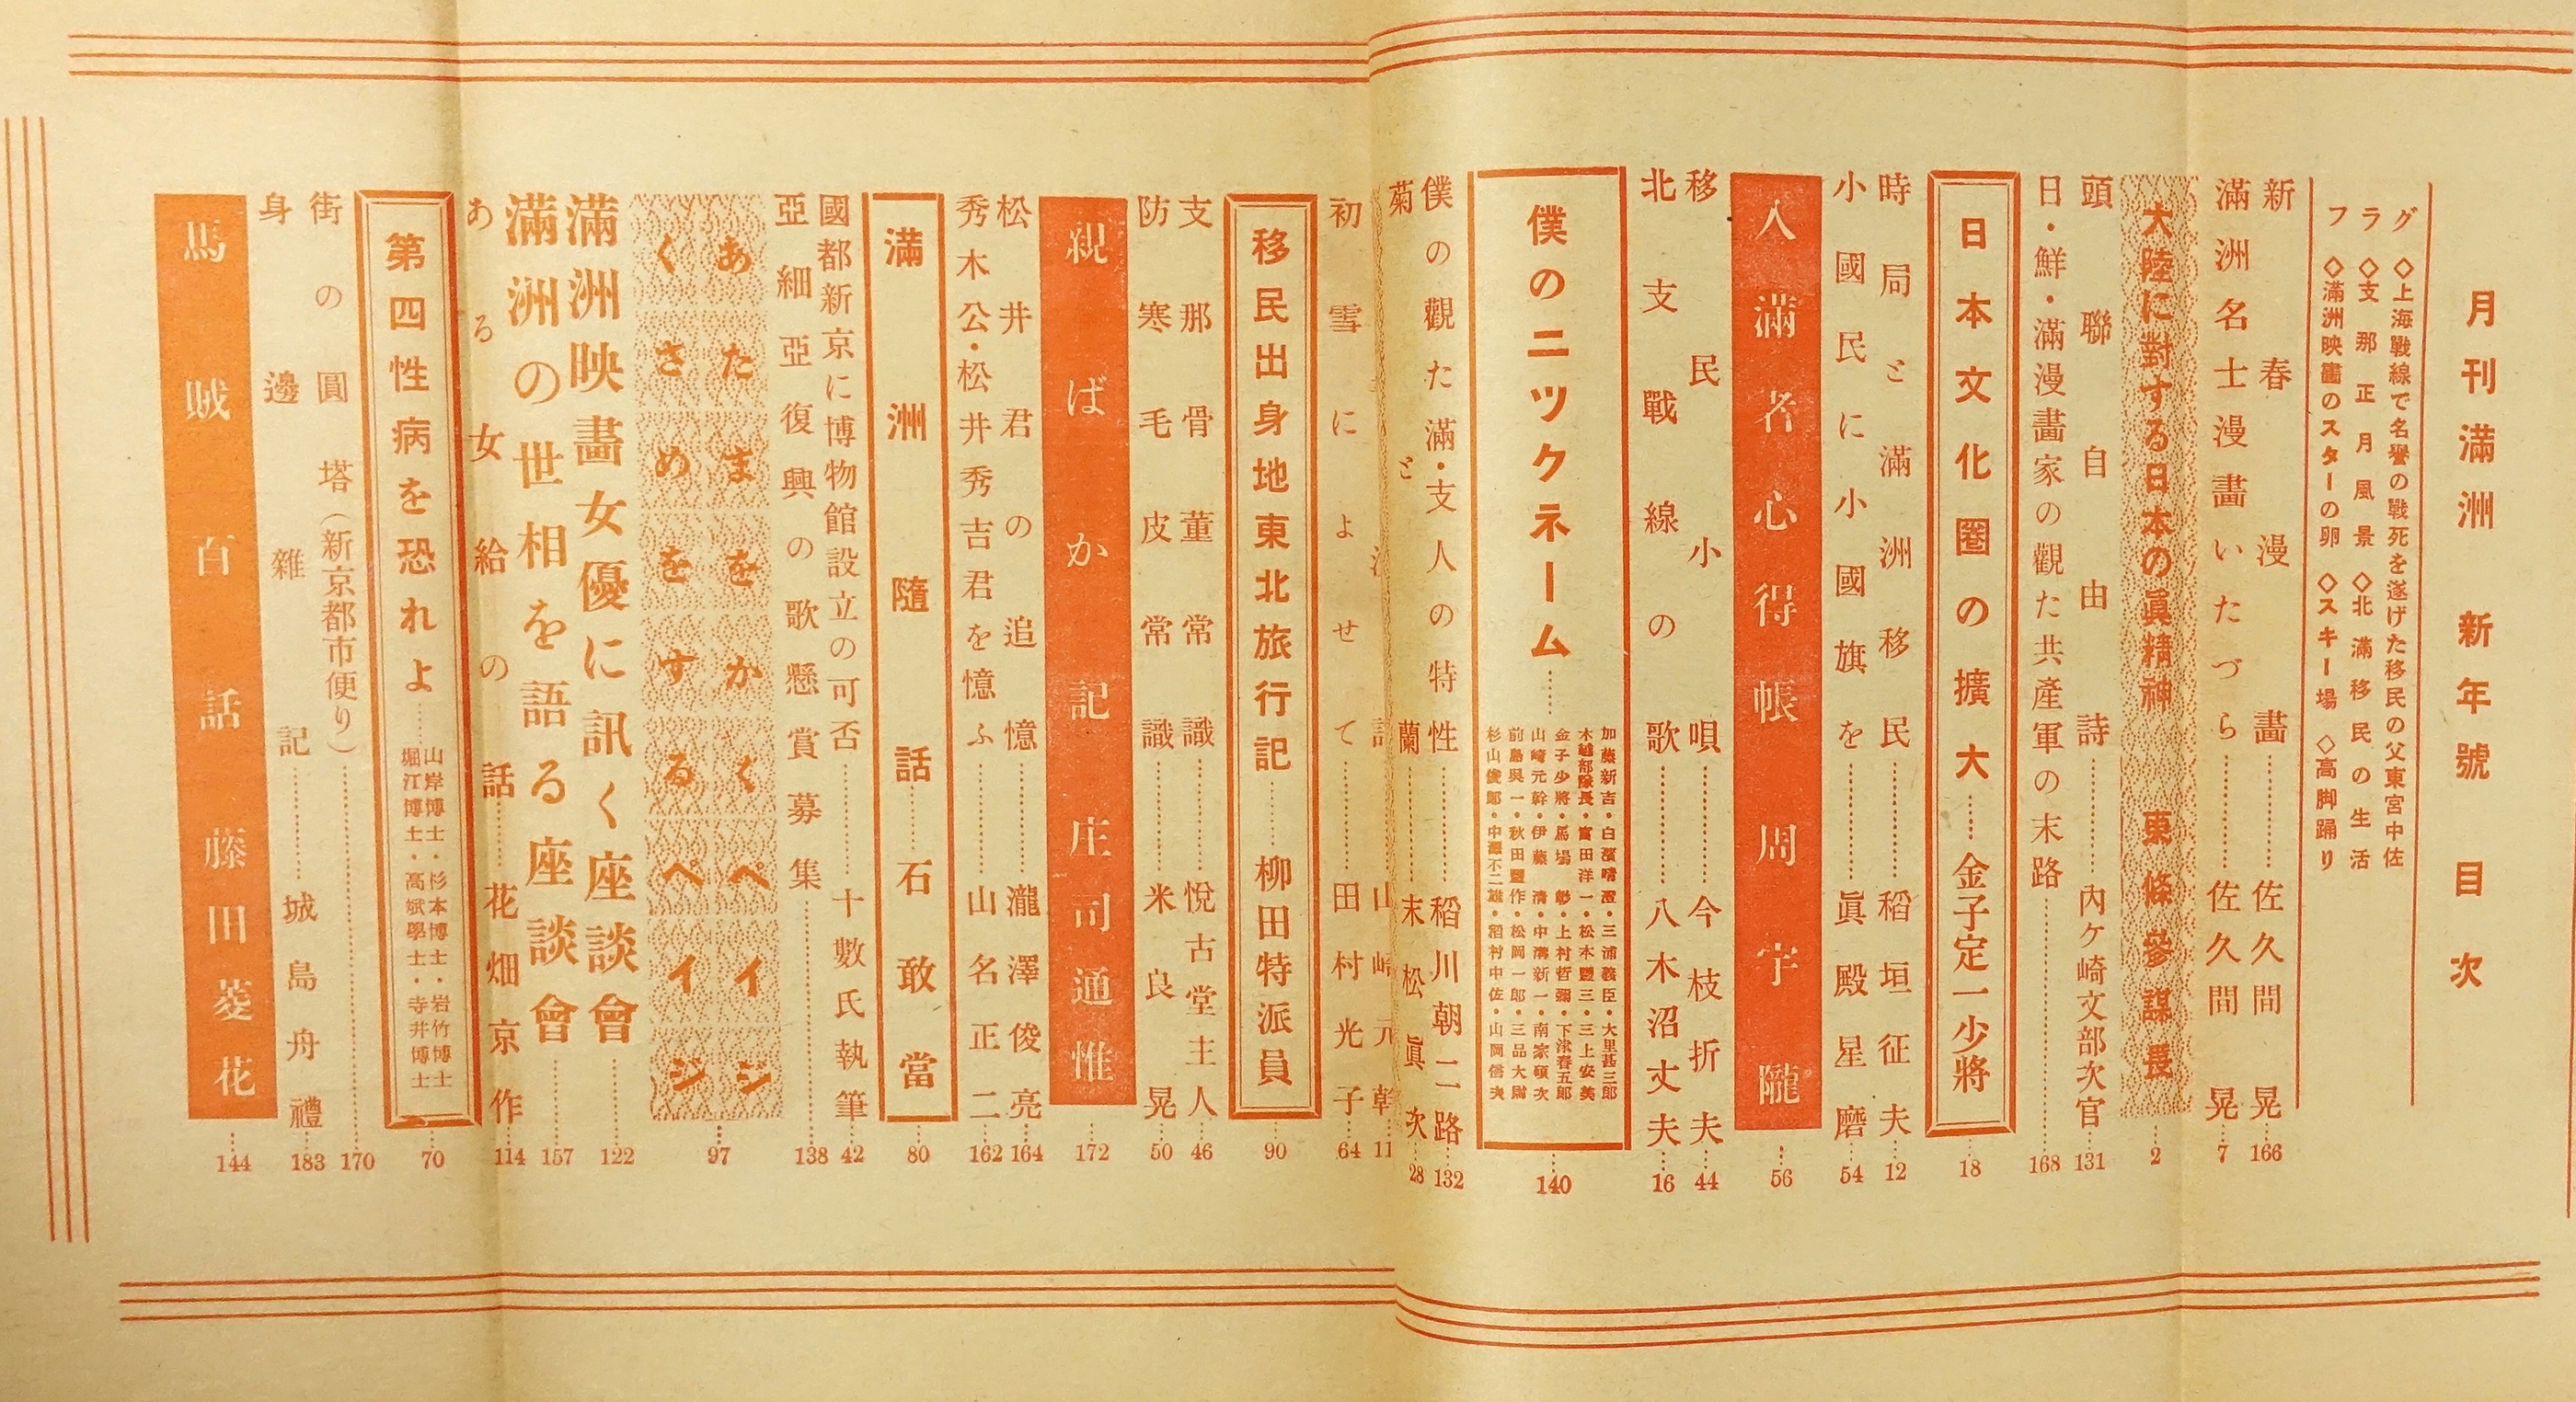 月刊滿洲 新年號 目次
グラフ
◇上海戰線で名譽の戰死を遂げた移民の父東宮中佐
◇支那正月風景 ◇北滿移民の生活
◇滿洲映畫のスターの卵 ◇スキー場 ◇高脚踊り
新春漫畫……佐久間晃…166
滿洲名士漫畫いたづら……佐久間晃…7
大陸に對する日本の眞精神 東條參謀長…2
頭聯自由詩……內ケ崎文部次官…131
日・鮮・滿漫畫家の觀た共產軍の末路……168
日本文化圏の擴大……金子定一少將…18
時局と滿洲移民……稻垣征夫…12
小國民に小國旗を……眞殿星磨…54
入滿者心得帳 周宇隴…56
移民小唄……今枝折夫…44
北支戰線の歌……八木沼丈夫…16
僕のニツクネーム……140
加藤新吉・白濱晴澄・三浦義臣・大里甚三郎
木越部隊長・富田洋一・松本豐三・三上安美
金子少將・馬場 彰・上村哲彌・下津春五郎
山崎元幹・伊藤 清・中溝新一・南家碩次
前島與一・秋田豐作・松岡一郎・三品大尉
杉山俊郎・中瀨不二雄・稻村中佐・山岡信夫
僕の觀た滿・支人の特性……稻川朝二路…132
菊と蘭……末松眞次…28
山崎元幹…11
初雪によせて……田村光子…64
移民出身地東北旅行記……柳田特派員…90
支那骨董常識……悅古堂主人…46
防寒毛皮常識……米良晃…50
親ばか記 庄司通惟…172
松井君の追憶……瀧澤俊亮…164
秀木公・松井秀吉君を憶ふ……山名正二…162
滿洲隨話……石敢當…80
國都新京に博物館設立の可否……十數氏執筆…42
亞細亞復興の歌懸賞募集……138
あたまをかくペイジ
くさめをするペイジ…97
滿洲映畫女優に訊く座談會……122
滿洲の世相を語る座談會……157
ある女給の話……花畑京作…114
第四性病を恐れよ……山岸博士・杉本博士・岩竹博士
堀江博士・高斌學士・寺井博士…70
街の圓塔（新京都市便り）……170
身邊雜記……城島舟禮…183
馬賊百話 藤田菱花…144